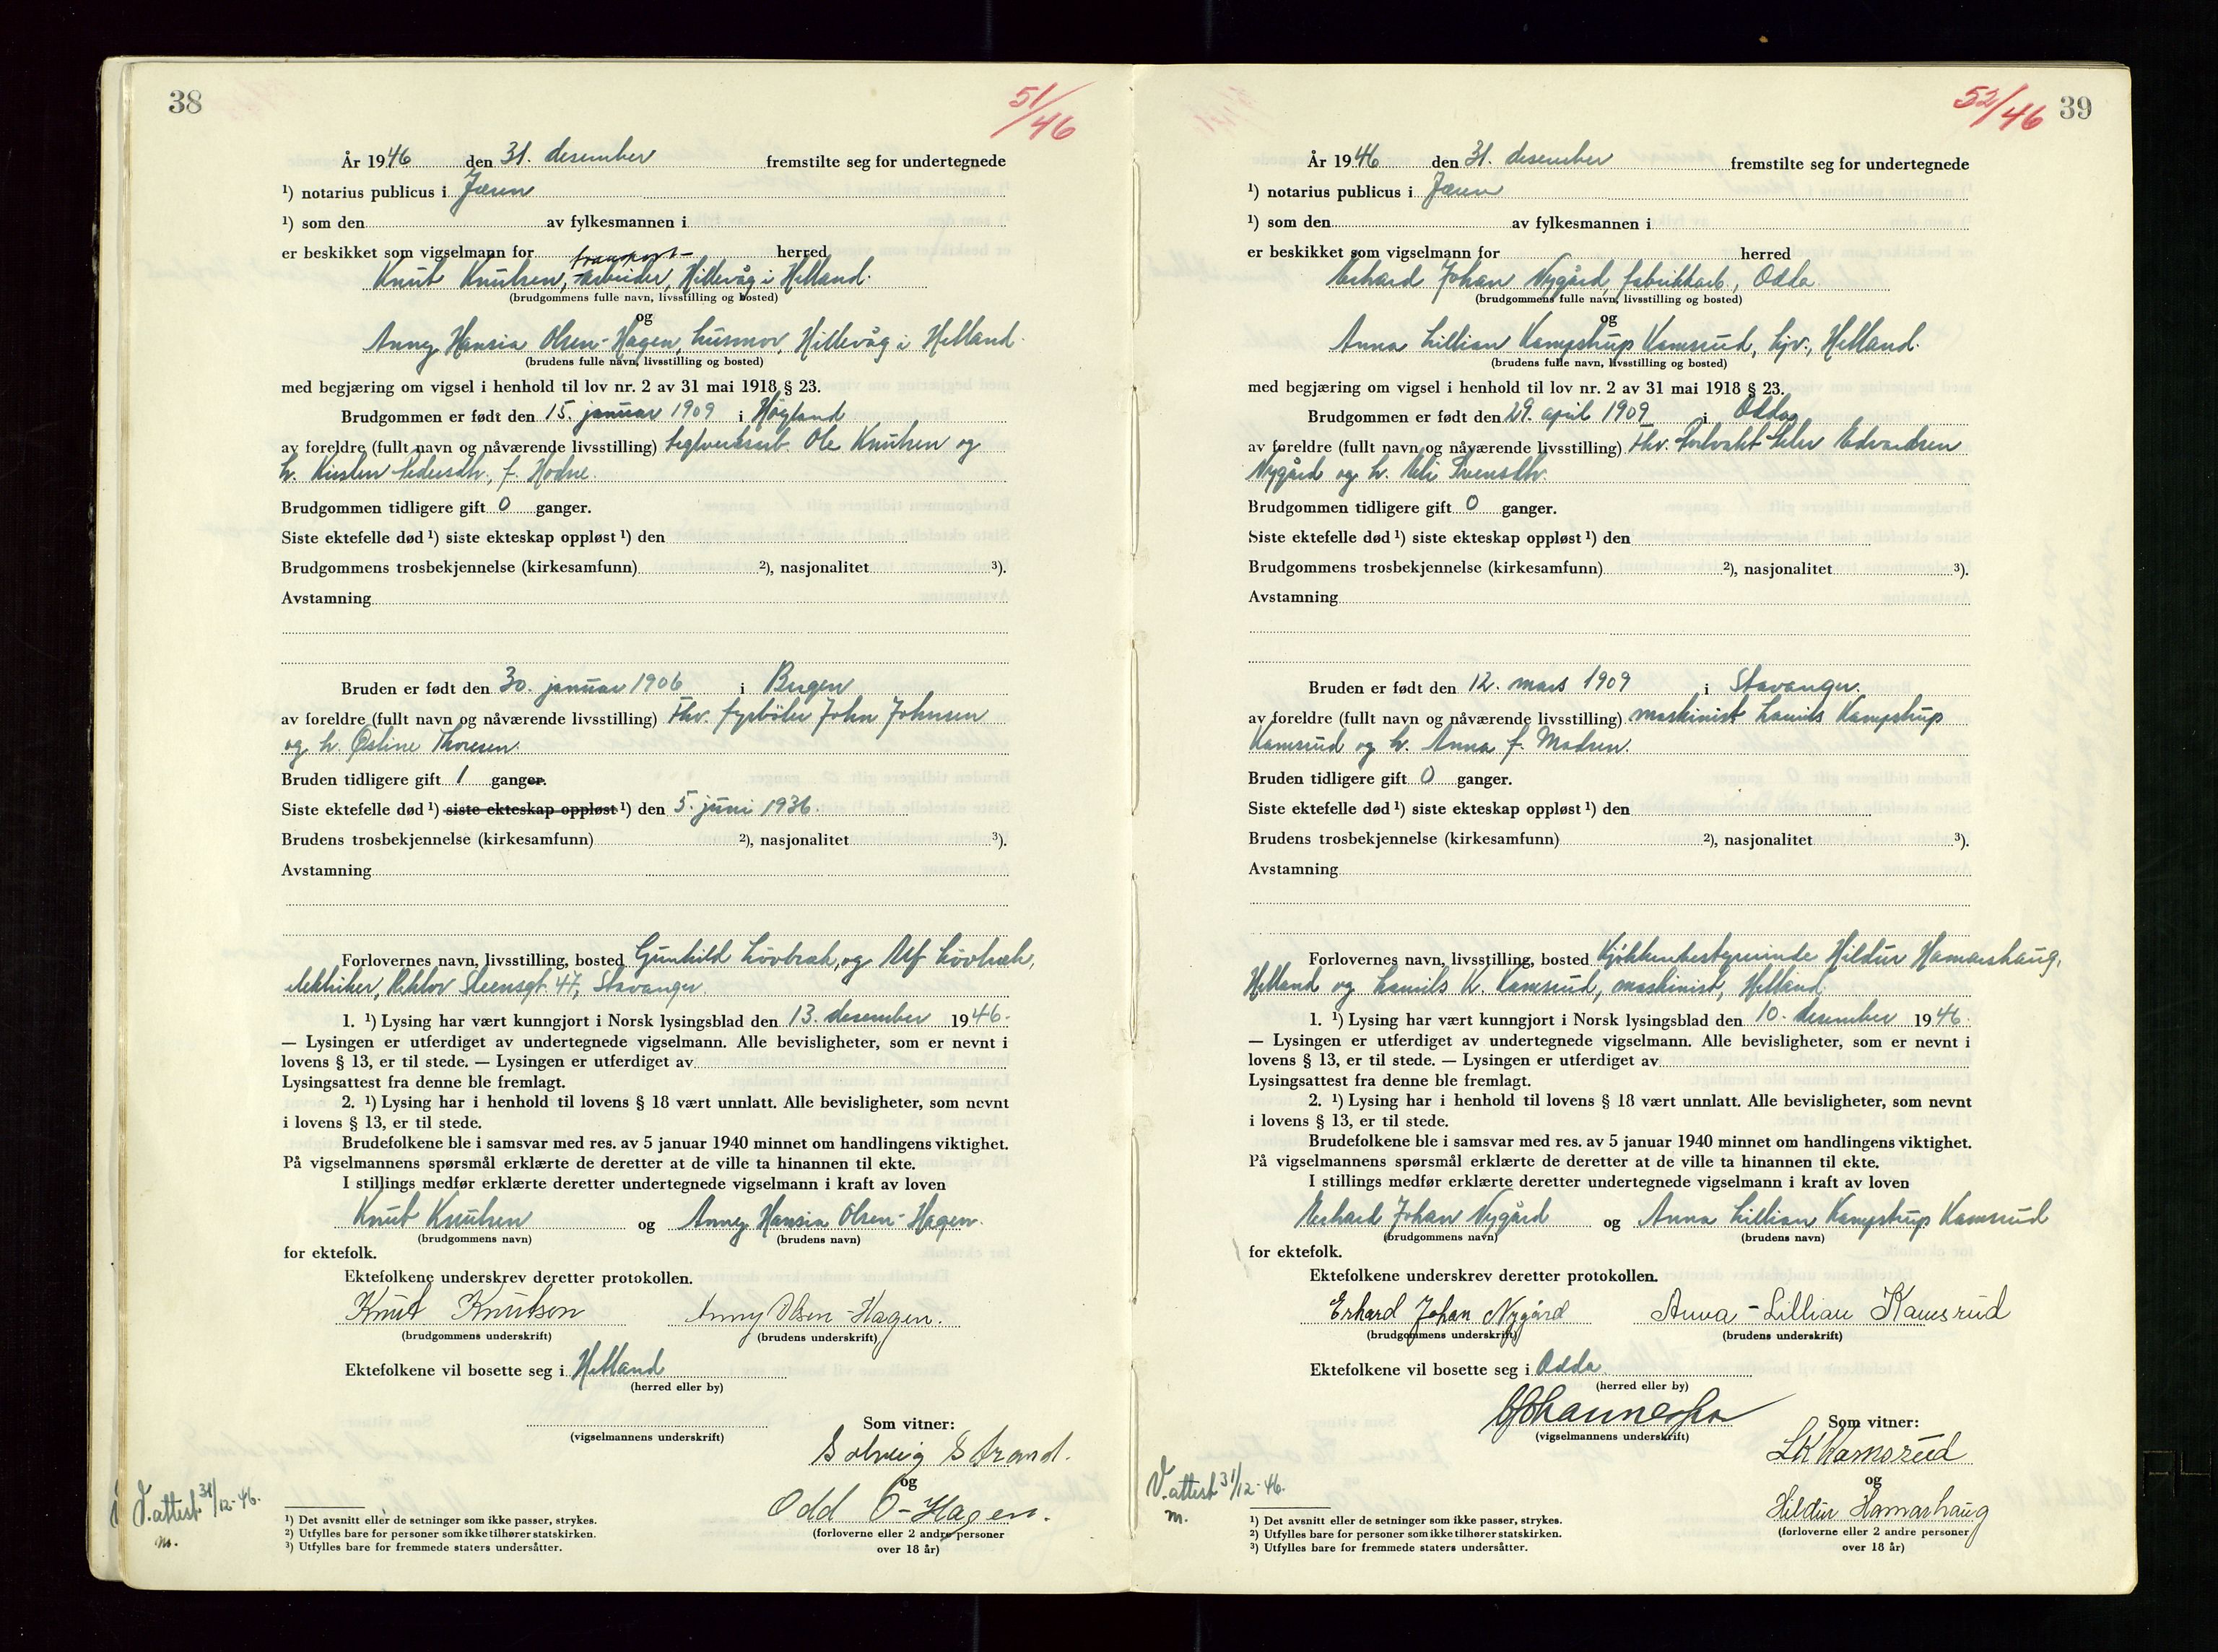 38
51/46
År 1946 den 31. desember fremstilte seg for undertegnede
¹) notarius publicus i Jæren
¹) som den av fylkesmannen i
er beskikket som vigselmann for herred
transport-
Knut Knutsen, arbeider, Hillevåg i Hetland.
(brudgommens fulle navn, livsstilling og bosted)
og
Anny Hansia Olsen-Hagen, husmor, Hillevåg i Hetland.
(brudens fulle navn, livsstilling og bosted)
med begjæring om vigsel i henhold til lov nr. 2 av 31 mai 1918 § 23.
Brudgommen er født den 15. januar 1909 i Høyland
av foreldre (fullt navn og nåværende livsstilling) teglverksarb. Ole Knutsen og
h. Kirsten Pedersdtr., f. Hodne.
Brudgommen tidligere gift 0 ganger.
Siste ektefelle død ¹) siste ekteskap oppløst ¹) den
Brudgommens trosbekjennelse (kirkesamfunn) ²), nasjonalitet ³).
Avstamning
Bruden er født den 30. januar 1906 i Bergen
av foreldre (fullt navn og nåværende livsstilling) Fhv. fyrbøter John Johnsen
og h. Østine Thoresen.
Bruden tidligere gift 1 ganger.
Siste ektefelle død ¹) siste ekteskap oppløst ¹) den 5. juni 1936.
Brudens trosbekjennelse (kirkesamfunn) ²), nasjonalitet ³).
Avstamning
Forlovernes navn, livsstilling, bosted Gunhild Løvbræk, og Alf Løvbræk,
elektriker, Rektor Steensgt. 47, Stavanger.
1. ¹) Lysing har vært kunngjort i Norsk lysingsblad den 13. desember 1946.
— Lysingen er utferdiget av undertegnede vigselmann. Alle bevisligheter, som er nevnt i
lovens § 13, er til stede. — Lysingen er utferdiget av
Lysingsattest fra denne ble fremlagt.
2. ¹) Lysing har i henhold til lovens § 18 vært unnlatt. Alle bevisligheter, som nevnt
i lovens § 13, er til stede.
Brudefolkene ble i samsvar med res. av 5 januar 1940 minnet om handlingens viktighet.
På vigselmannens spørsmål erklærte de deretter at de ville ta hinannen til ekte.
I stillings medfør erklærte deretter undertegnede vigselmann i kraft av loven
Knut Knutsen og Anny Hansia Olsen-Hagen.
(brudgommens navn) (brudens navn)
for ektefolk.
Ektefolkene underskrev deretter protokollen.
Knut Knutsen Anny Olsen-Hagen.
(brudgommens underskrift) (brudens underskrift)
Ektefolkene vil bosette seg i Hetland
(herred eller by)
Som vitner:
(vigselmannens underskrift)
Solveig Strand.
og
Odd O-Hagen.
(forloverne eller 2 andre personer
over 18 år)
V.attest 31/12-46.
m.
¹) Det avsnitt eller de setninger som ikke passer, strykes.
²) Utfylles bare for personer som ikke tilhører statskirken.
³) Utfylles bare for fremmede staters undersåtter.
52/46
39
År 1946 den 31. desember fremstilte seg for undertegnede
¹) notarius publicus i Jæren
¹) som den av fylkesmannen i
er beskikket som vigselmann for herred
Erhard Johan Nygård, fabrikkarb., Odda
(brudgommens fulle navn, livsstilling og bosted)
og
Anna Lillian Kampstrup Kamsrud, hjv., Hetland.
(brudens fulle navn, livsstilling og bosted)
med begjæring om vigsel i henhold til lov nr. 2 av 31 mai 1918 § 23.
Brudgommen er født den 29. april 1909 i Odda
av foreldre (fullt navn og nåværende livsstilling) Fhv. Edvardsen
Nygård og h. Eli Svensdtr.
Brudgommen tidligere gift 0 ganger.
Siste ektefelle død ¹) siste ekteskap oppløst ¹) den
Brudgommens trosbekjennelse (kirkesamfunn) ²), nasjonalitet ³).
Avstamning
Bruden er født den 12. mars 1909 i Stavanger.
av foreldre (fullt navn og nåværende livsstilling) maskinist Kampstrup
Kamsrud og h. Anna f. Madsen.
Bruden tidligere gift 0 ganger.
Siste ektefelle død ¹) siste ekteskap oppløst ¹) den
Brudens trosbekjennelse (kirkesamfunn) ²), nasjonalitet ³).
Avstamning
Forlovernes navn, livsstilling, bosted Kjøkkenbestyrerinde Hildur Hamarshaug,
Hetland og K. Kamsrud, maskinist, Hetland
1. ¹) Lysing har vært kunngjort i Norsk lysingsblad den 10. desember 1946.
— Lysingen er utferdiget av undertegnede vigselmann. Alle bevisligheter, som er nevnt i
lovens § 13, er til stede. — Lysingen er utferdiget av
Lysingsattest fra denne ble fremlagt.
2. ¹) Lysing har i henhold til lovens § 18 vært unnlatt. Alle bevisligheter, som nevnt
i lovens § 13, er til stede.
Brudefolkene ble i samsvar med res. av 5 januar 1940 minnet om handlingens viktighet.
På vigselmannens spørsmål erklærte de deretter at de ville ta hinannen til ekte.
I stillings medfør erklærte deretter undertegnede vigselmann i kraft av loven
Erhard Johan Nygård og Anna Lillian Kampstrup Kamsrud
(brudgommens navn) (brudens navn)
for ektefolk.
Ektefolkene underskrev deretter protokollen.
Erhard Johan Nygård Anna-Lillian Kamsrud
(brudgommens underskrift) (brudens underskrift)
Ektefolkene vil bosette seg i Odda
(herred eller by)
Som vitner:
(vigselmannens underskrift)
LKKamsrud
og
Hildur Hamarshaug
(forloverne eller 2 andre personer
over 18 år)
V.attest 31/12-46.
m.
¹) Det avsnitt eller de setninger som ikke passer, strykes.
²) Utfylles bare for personer som ikke tilhører statskirken.
³) Utfylles bare for fremmede staters undersåtter.